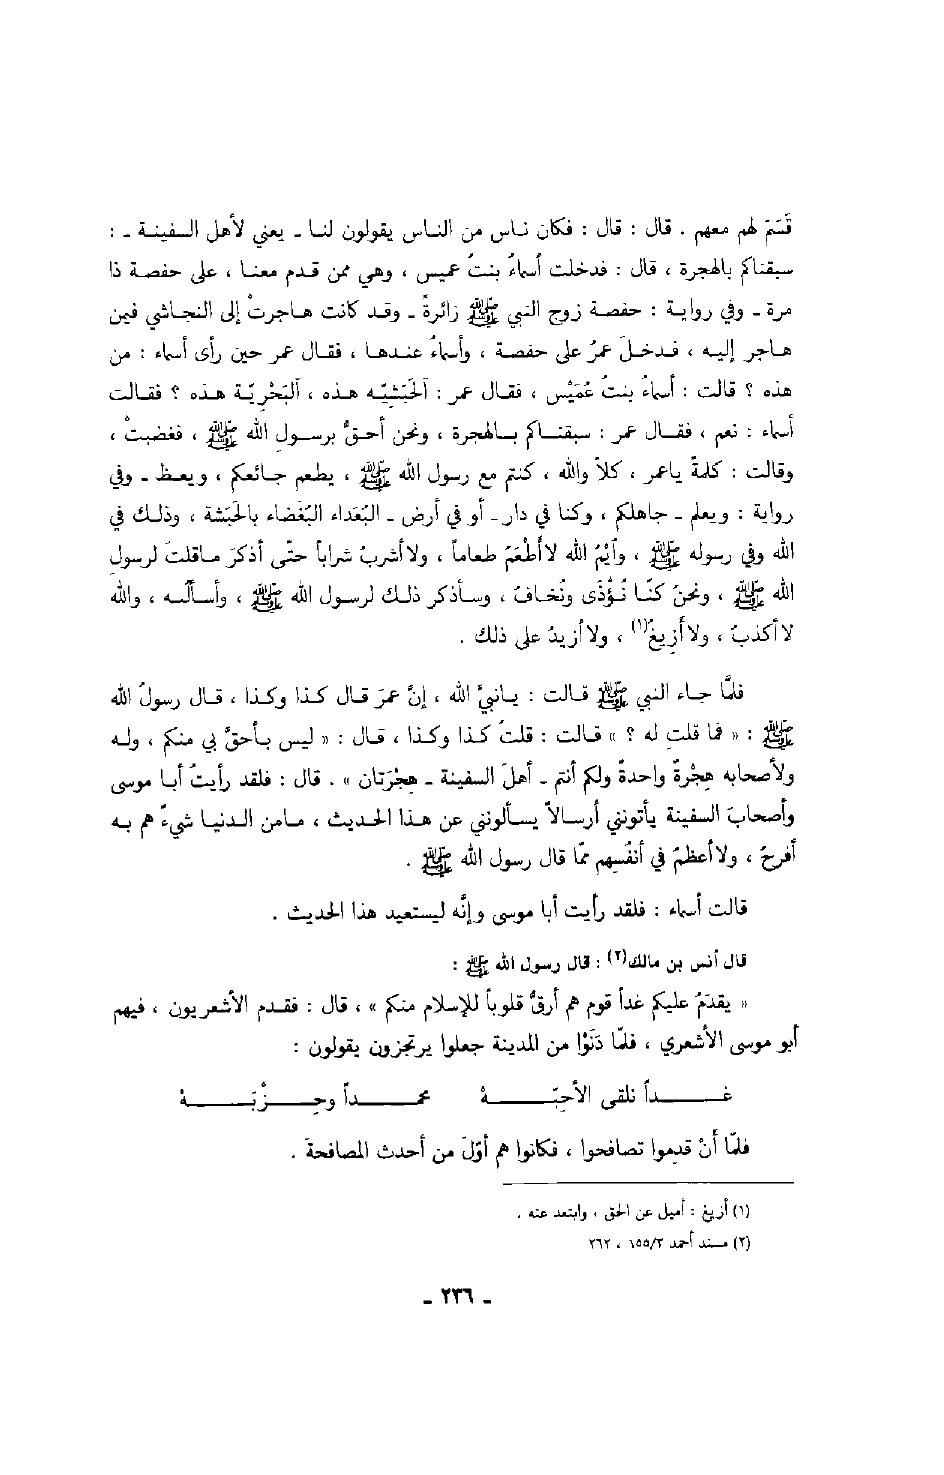 قَسَمَ لهم معهم . قال : قال : فكان ناس من الناس يقولون لنا ـ يعني لأهل السفينة ـ :
سبقناكم بالهجرة ، قال : فدخلت أسماءُ بنتُ عميس ، وهي ممن قدم معنا ، على حفصة ذا
مرة ـ وفي رواية : حفصة زوج النبي ﷺ زائرةً ـ وقد كانت هاجرتْ إلى النجاشي فيمن
هاجر إليه ، فدخلَ عمرُ على حفصة ، وأسماءُ عندها ، فقال عمر حين رأى أسماء : من
هذه ؟ قالت : أسماءُ بنتُ عُمَيْس ، فقال عمر : آلحَبَشِيّه هذه ، آلبَحْرِيّة هذه ؟ فقالت
أسماء : نعم ، فقال عمر : سبقناكم بالهجرة ، ونحن أحقُّ برسولِ الله ﷺ ، فغضبتْ ،
وقالت : كلمةً ياعمر ، كلاّ والله ، كنتم مع رسول الله ﷺ ، يطعم جائعكم ، ويعظ ـ وفي
رواية : ويعلم ـ جاهلكم ، وكنا في دار ـ أو في أرض ـ البُعَداء البُغَضاء بالحَبَشة ، وذلك في
الله وفي رسوله ﷺ ، وآيْمُ الله لاأَطْعَمُ طعاماً ، ولاأشربُ شراباً حتّى أذكرَ ماقلتَ لرسولِ
الله ﷺ ، ونحنُ كنّا نُؤْذَى ونُخافُ ، وسأذكر ذلك لرسول الله ﷺ ، وأسألُه ، واللهِ
لاأكذبُ ، ولاأَزِيغُ(١) ، ولاأزيدُ على ذلك .
فلمَّا جاء النبي ﷺ قالت : يانبيَّ الله ، إنَّ عمرَ قال كذا وكذا ، قال رسولُ الله
ﷺ : « فما قلتِ له ؟ » قالت : قلتُ كذا وكذا ، قال : « ليس بأحقَّ بي منكم ، وله
ولأصحابه هِجْرةٌ واحدةٌ ولكم أنتم ـ أهلَ السفينة ـ هِجْرَتان » . قال : فلقد رأيتُ أبا موسى
وأصحابَ السفينة يأتونني أرسالاً يسألونني عن هذا الحديث ، مامن الدنيا شيءٌ هم به
أفرحُ ، ولاأعظمُ في أنفُسِهم ممّا قال رسول الله ﷺ .
قالت أسماء : فلقد رأيت أبا موسى وإنَّه ليستعيد هذا الحديث .
قال أنس بن مالك(٢) : قال رسول الله ﷺ :
« يقدَمُ عليكم غداً قوم هم أرقُّ قلوباً للإسلام منكم » ، قال : فقدم الأشعريون ، فيهم
أبو موسى الأشعري ، فلمّا دَنَوْا من المدينة جعلوا يرتجزون يقولون :
غداً نلقى الأحِبّة محمداً وحِزْبَهْ
فلمّا أَنْ قدِموا تصافحوا ، فكانوا هم أوّلَ من أحدث المصافحة .
(١) أزيغ : أميل عن الحق ، وابتعد عنه .
(٢) مسند أحمد ١٥٥/٣ ، ٢٦٢
ـ ٢٣٦ ـ